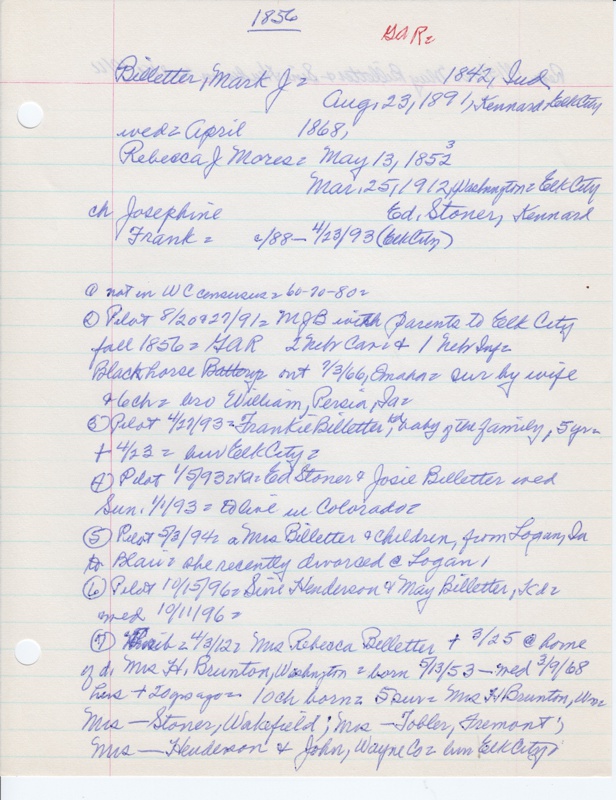 1856
GAR=
Billetter, Mark J= 1842, Ind
Aug, 23, 1891, Kennard, Elk City
wed= April 1868,
Rebecca J Mores= May 13, 1852 3
Mar, 25, 1912, Washington= Elk City
ch Josephine Ed, Stoner, Kennard
Frank= c/88 - 4/23/93 (Elk City)
① not in WC censuses= 60-70-80=
② Pilot 8/20+27/91= MJB with parents to Elk City
fall 1856= GAR 2 Nebr Cav & 1 Nebr Inf=
Blackhorse out 7/3/66, Omaha= sur by wife
+ 6 ch= bro William, Persia, Ia=
③ Pilot 4/27/93= Frankie Billetter, baby of the family, 5 yr=
+ 4/23= bur Elk City=
④ Pilot 1/5/93= Ed Stoner & Josie Billetter wed
Sun. 1/1/93= to live in Colorado=
⑤ Pilot 5/3/94= a Mrs Billetter & children, from Logan, Ia
to Blair= she recently divorced @ Logan,
⑥ Pilot 10/15/96= Sine Henderson & May Billetter, Kd=
wed 10/11/96=
⑦ Trib= 4/3/12= Mrs Rebecca Billetter + 3/25 @ home
of d. Mrs H. Brunton, Washington= born 5/13/53 - wed 3/9/68
hus + 20 yrs ago= 10 ch born= 5 sur= Mrs H Brunton,
Mrs - Stoner, Wakefield; Mrs - Tobler, Fremont;
Mrs - Henderson & John, Wayne Co= bur Elk City,